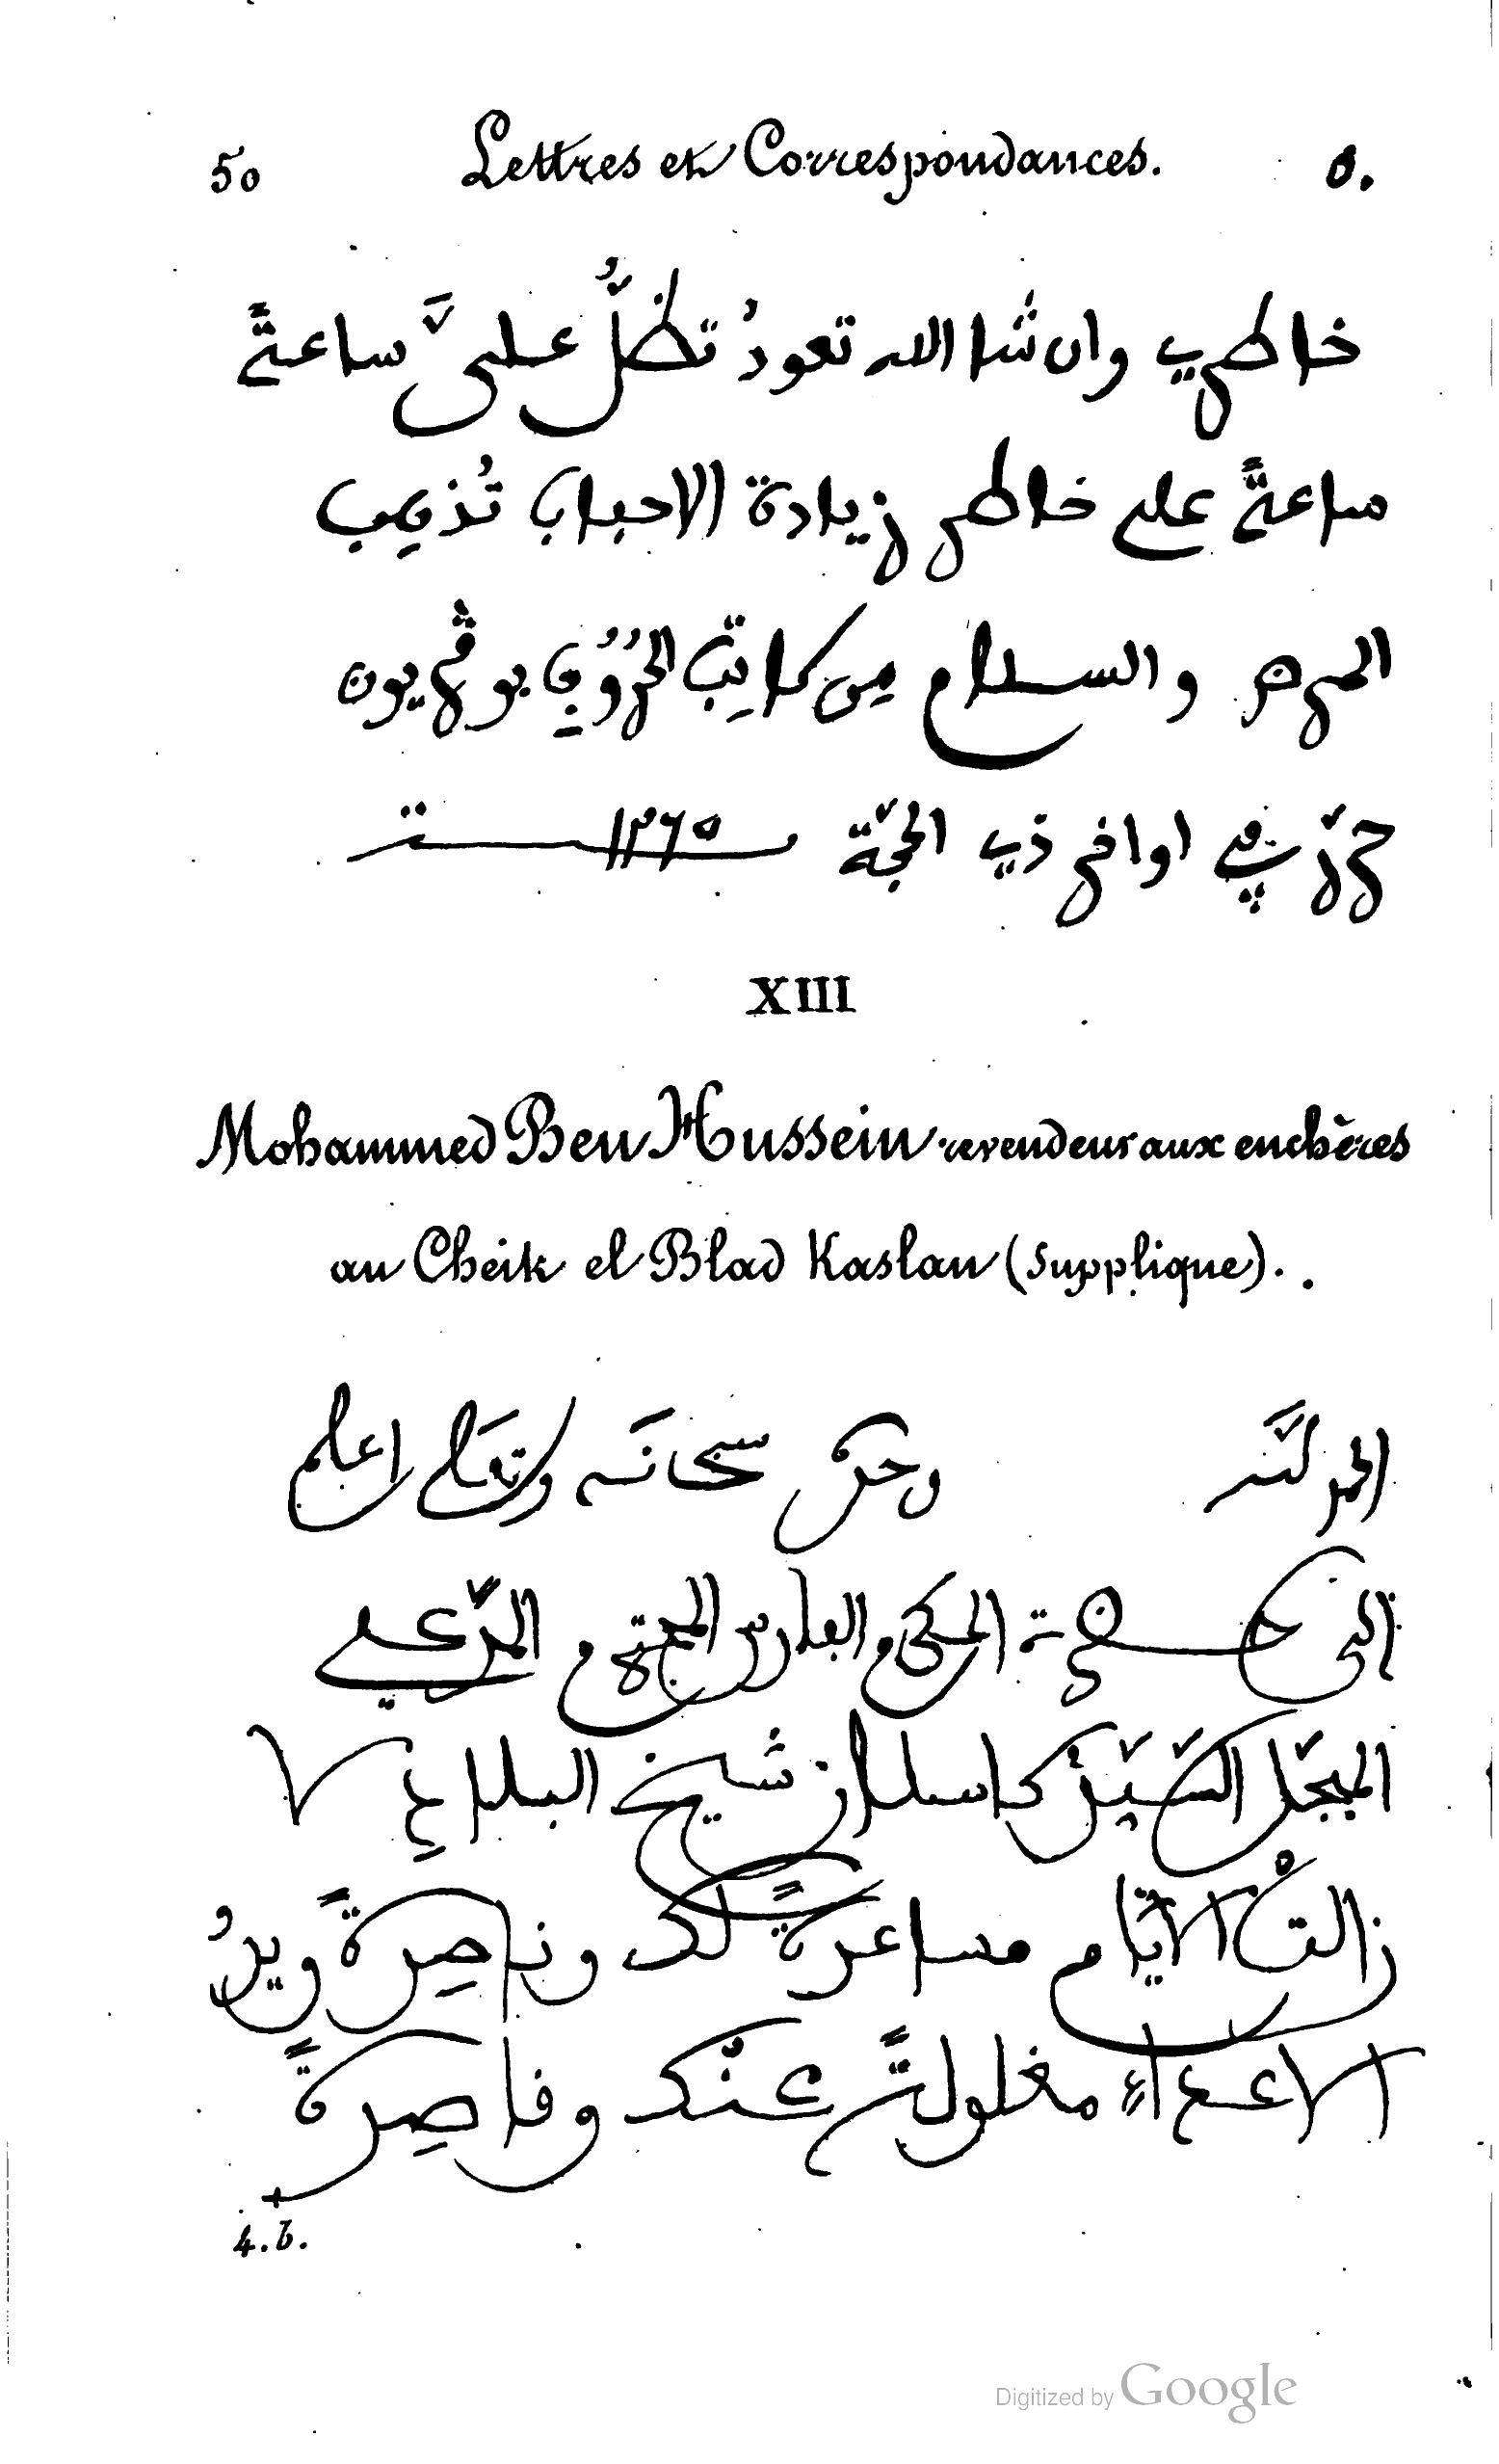 50 Lettres et Correspondances. ٥٠
خاطري وان شا الله تعودُ تظلُّ عليَّ ساعةً
ساعةً على خاطر زيادة الاحباب تُذهب
المرض والسلام من كاتِبِه الحُرُوفِ بو
في اواخر ذي الحجّة سنة ١٢٦٥
XIII
Mohammed Ben Hussein revendeur aux enchères
au Cheik el Blad Kaslan (Supplique).
الحمد لله وحده سبحانَه وتعَلى اعلم
الى حضرة المكرم الفارس المحترم المرّعي
المبجّل السّيّد كاسلان شيخ البلادِ لا
زالتْ الايّام مساعدةً لك وناصِرةً ويدُ
الاعداء مغلولةً عنك وقاصِرةً
4.b.
Digitized by Google